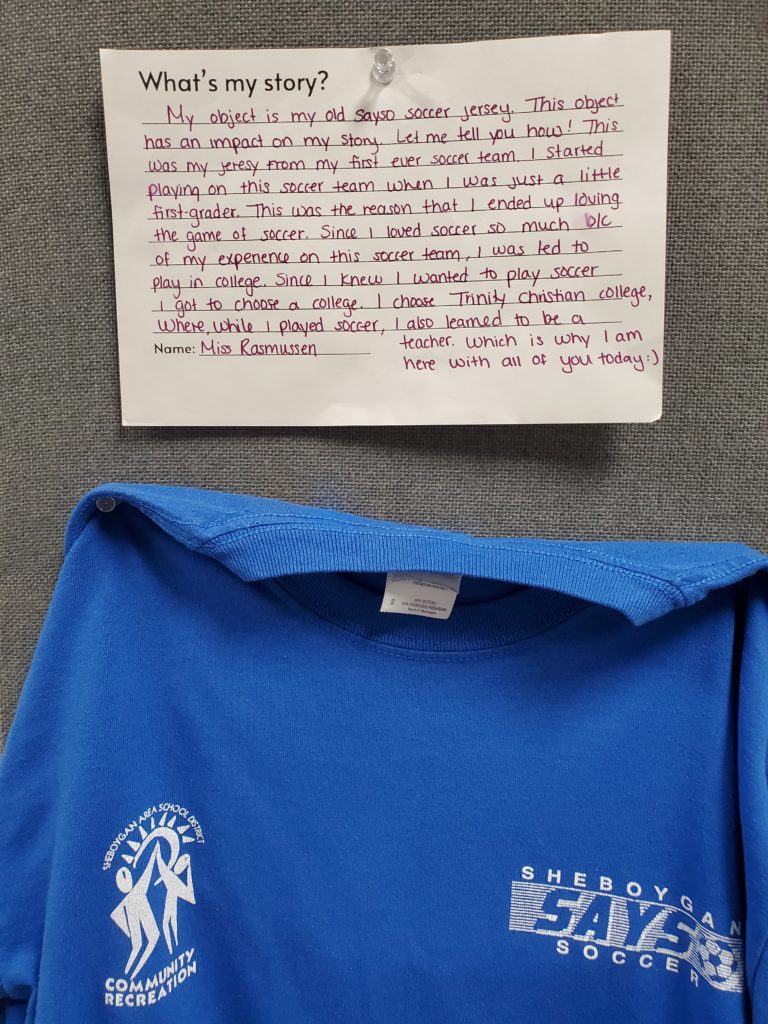 What's my story?
My object is my old sayso soccer jersey. This object
has an impact on my story. Let me tell you how! This
was my jeresy from my first ever soccer team. I started
playing on this soccer team when I was just a little
first-grader. This was the reason that I ended up loving
the game of soccer. Since I loved soccer so much b/c
of my experience on this soccer team, I was led to
play in college. Since I knew I wanted to play soccer
I got to choose a college. I choose Trinity Christian college,
Where, while I played soccer, I also learned to be a
teacher. Which is why I am
here with all of you today:)
Name: Miss Rasmussen
S
SHEBOYGAN AREA SCHOOL DISTRICT
COMMUNITY
RECREATION
SHEBOYGAN
SAYSO
SOCCER